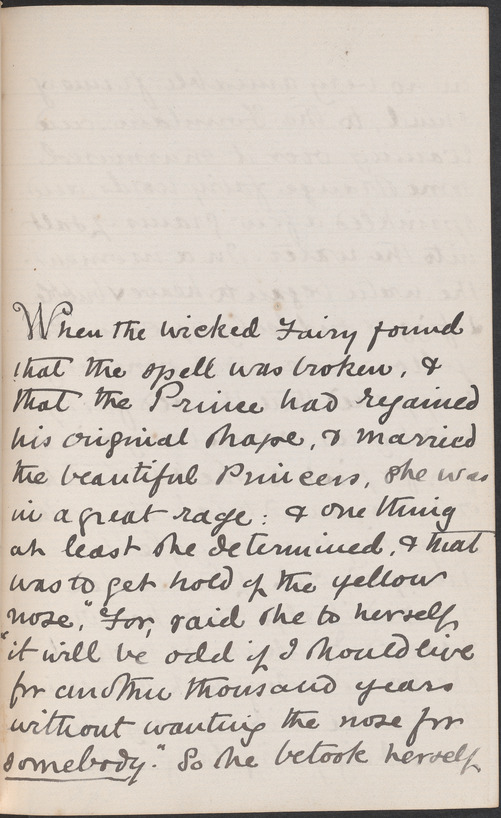 When the wicked Fairy found
that the spell was broken, &
that the Prince had regained
his original shape, & married
the beautiful Princess, she was
in a great rage: & one thing
at least she determined, & that
was to get hold of the yellow
nose, "For, said she to herself,
"it will be odd if I should live
for another thousand years
without wanting the nose for
somebody." So she betook herself